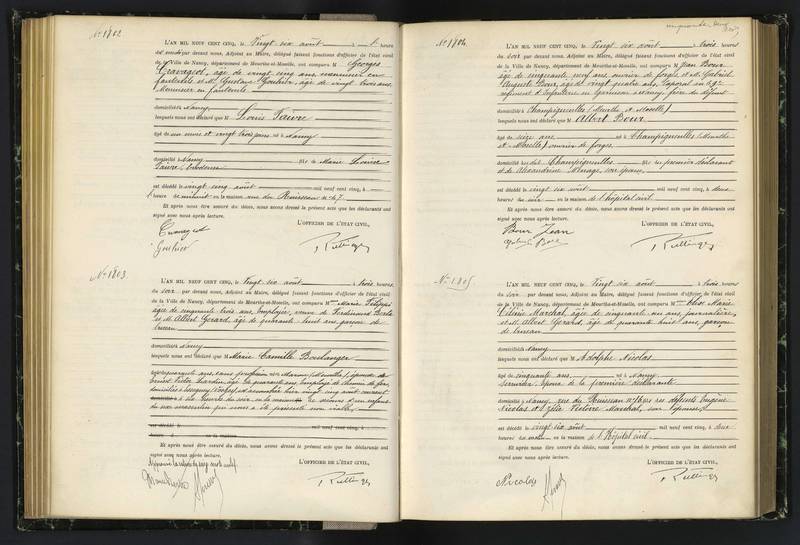 N° 1802
L'AN MIL NEUF CENT CINQ, le Vingt six août heure
par devant nous, Adjoint au Maire, délégué faisant fonctions d'officier de l'état civil
de la Ville de Nancy, département de Meurthe-et-Moselle, ont comparu M Georges
âgé de vingt cinq ans, menuisier en
fauteuils et M. Gustave Gouhier, âgé de vingt trois ans,
Menuisier en fauteuils
domiciliés à Nancy
lesquels nous ont déclaré que M Louis Faivre
âgé de un mois et vingt trois jours né à Nancy
domicilié à Nancy fils de Marie Louise
Faivre, brodeuse
est décédé le vingt cinq août mil neuf cent cinq, à
heure de minuit en la maison rue du Ruisseau n° 47
Et après nous être assuré du décès, nous avons dressé le présent acte que les déclarants ont
signé avec nous après lecture.
L'OFFICIER DE L'ÉTAT CIVIL,
Gouhier
N° 1803.
L'AN MIL NEUF CENT CINQ, le Vingt six août trois heures
du soir par devant nous, Adjoint au Maire, délégué faisant fonctions d'officier de l'état civil
de la Ville de Nancy, département de Meurthe-et-Moselle, ont comparu Mme Marie
âgée de cinquante trois ans, employée, veuve de Ferdinand
et M. Albert Gérard, âgé de quarante huit ans, garçon de
bureau
domiciliés à Nancy
lesquels nous ont déclaré que M Marie Camille Boulanger
âgée quarante ans, sans profession née à épouse de
Ernest Victor âgé de quarante ans, employé de chemin de fer,
domiciliés à (Vosges) est accouchée hier vingt cinq août courant
du soir, en la d'un enfant
du sexe masculin qui nous a été présenté non viable.
est décédé à
heure à en la maison
Et après nous être assuré du décès, nous avons dressé le présent acte que les déclarants ont
signé avec nous après lecture.
L'OFFICIER DE L'ÉTAT CIVIL,
N° 1804
L'AN MIL NEUF CENT CINQ, le Vingt six août trois heures
du soir par devant nous, Adjoint au Maire, délégué faisant fonctions d'officier de l'état civil
de la Ville de Nancy, département de Meurthe-et-Moselle, ont comparu M Jean Bour
âgé de cinquante neuf ans ouvrier de forges et M. Gabriel
Auguste Bour, âgé de vingt quatre ans, caporal au
régiment d'Infanterie en garnison à Nancy, frère du défunt
domiciliés à Champigneulles (Meurthe et Moselle)
lesquels nous ont déclaré que M Albert Bour
âgé de seize ans né à Champigneulles (Meurthe
et Moselle) ouvrier de forges
domicilié au dit Champigneulles fils du premier déclarant
et de Alexandrine son épouse
est décédé le vingt six août mil neuf cent cinq, à deux
heures du soir en la maison de l'hôpital civil
Et après nous être assuré du décès, nous avons dressé le présent acte que les déclarants ont
signé avec nous après lecture.
L'OFFICIER DE L'ÉTAT CIVIL,
Bour Jean
N° 1805
L'AN MIL NEUF CENT CINQ, le Vingt six août trois heures
du soir par devant nous, Adjoint au Maire, délégué faisant fonctions d'officier de l'état civil
de la Ville de Nancy, département de Meurthe-et-Moselle, ont comparu Marie
Marchal, âgée de cinquante un ans, journalière,
et M. Albert Gérard, âgé de quarante huit ans, garçon
de bureau
domiciliés à Nancy
lesquels nous ont déclaré que M Adolphe Nicolas
âgé de cinquante ans né à Nancy
époux de la première déclarante
domicilié à Nancy, rue du Ruisseau n° fils des défunts Eugène
Nicolas et Marchal, son épouse
est décédé le vingt six août mil neuf cent cinq, à deux
heures du en la maison de l'Hôpital civil
Et après nous être assuré du décès, nous avons dressé le présent acte que les déclarants ont
signé avec nous après lecture.
L'OFFICIER DE L'ÉTAT CIVIL,
Nicolas